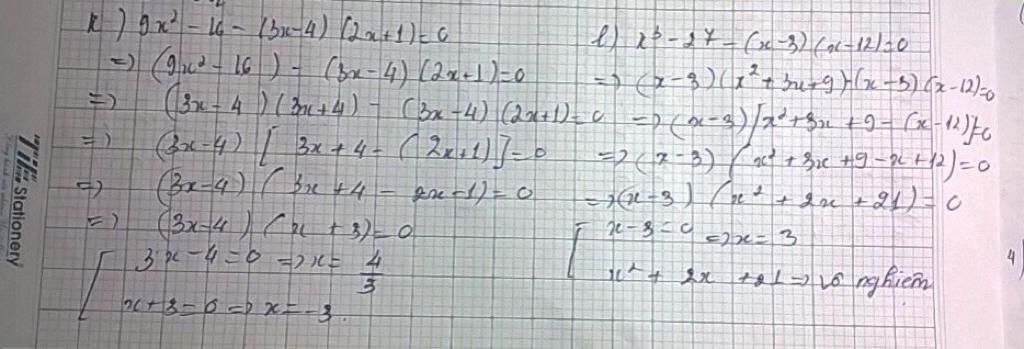 k) 9x² - 16 - (3x-4)(2x+1)=0
=> (9x² - 16) - (3x-4)(2x+1)=0
=> (3x-4)(3x+4) - (3x-4)(2x+1)=0
=> (3x-4)[3x+4-(2x+1)]=0
=> (3x-4)(3x+4-2x-1)=0
=> (3x-4)(x+3)=0
3x-4=0 => x= 4/3
x+3=0 => x=-3.
l) x³ - 27 - (x-3)(x-12)=0
=> (x-3)(x²+3x+9)-(x-3)(x-12)=0
=> (x-3)[x²+3x+9-(x-12)]=0
=> (x-3)(x²+3x+9-x+12)=0
=> (x-3)(x²+2x+21)=0
x-3=0 => x=3
x²+2x+21 => vô nghiệm
4)
Stationery